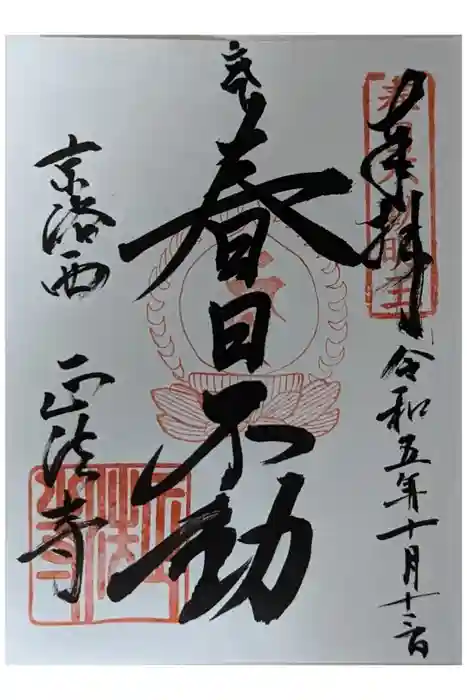 奉拝
令和五年十月十二日
春日不動
京洛西
正法寺